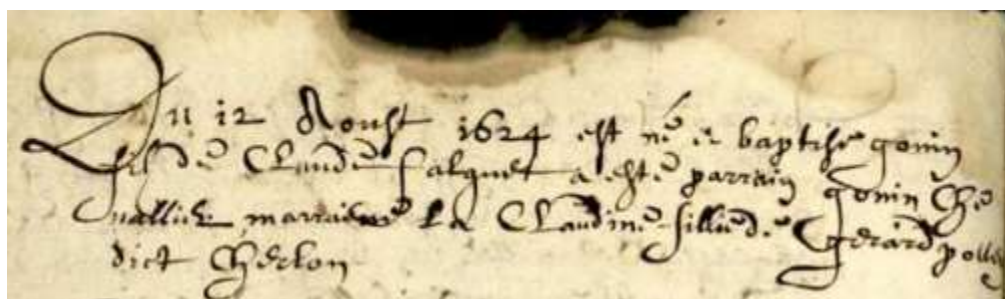 Du 12 Aoust 1624 est né et baptisé gonin
fils de Claude Falquet a esté parrain gonin Che
uallier marraine la Claudine fillie de Gerard
dict Cherlon